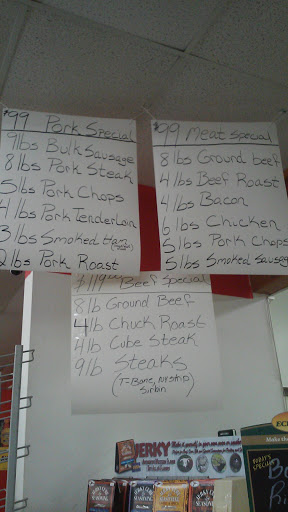 $99 Pork Special
9lbs Bulk Sausage
8lbs Pork Steak
5lbs Pork Chops
4lbs Pork Tenderloin
3lbs Smoked Ham
2lbs Pork Roast
$99 Meat Special
8 lbs Ground beef
4 lbs Beef Roast
4 lbs Bacon
6 lbs Chicken
5 lbs Pork Chops
5 lbs Smoked Sausage
Beef Special
8lb Ground Beef
4lb Chuck Roast
4lb Cube Steak
9lb Steaks
(T-Bone, NY strip
Sirloin)
JERKY